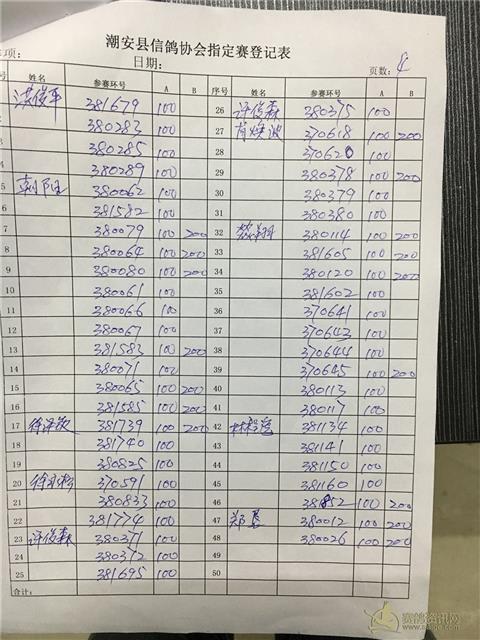 潮安县信鸽协会指定赛登记表
项: 日期: 页数: 4
号 姓名 参赛环号 A B 序号 姓名 参赛环号 A B
洪俊平 381679 100 26 许俊森 380375 100
380283 100 27 肖焕波 370618 100 200
380285 100 28 370620 100
380289 100 29 380378 100 200
5 朝阳 380062 100 30 380379 100
6 381582 100 31 380380 100
7 380079 100 200 32 380114 100 200
8 380064 100 200 33 381605 100 200
9 380080 100 200 34 380120 100 200
10 380061 100 35 381602 100
11 380066 100 36 370641 100
12 380067 100 37 370642 100
13 381583 100 200 38 370644 100
14 380071 100 39 370645 100 200
15 380065 100 200 40 380113 100
16 381585 100 200 41 380117 100
17 381739 100 200 42 381134 100
18 381740 100 43 381141 100
19 380825 100 44 381150 100
20 370591 100 45 381160 100
21 380833 100 46 381852 100 200
22 381774 100 47 郑基 380012 100 200
23 许俊森 380371 100 48 380026 100 200
24 380372 100 49
25 381695 100 50
合计:
赛鸽资讯网